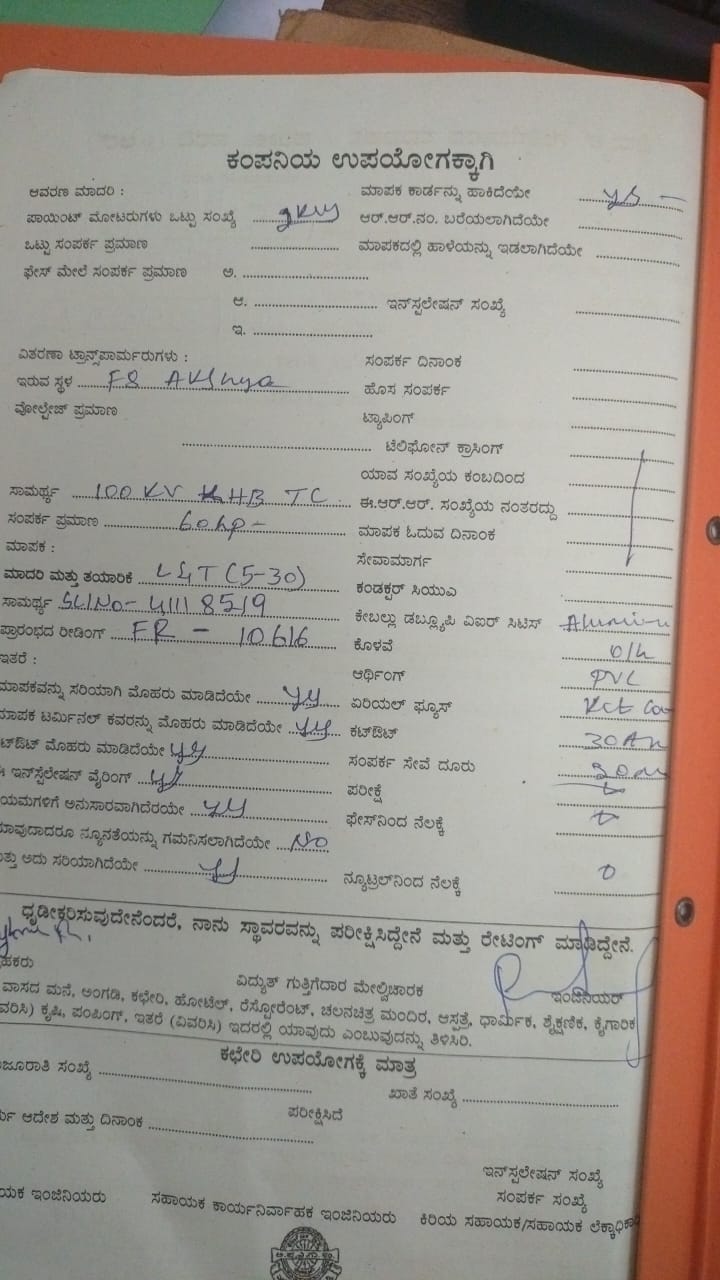 ಕಂಪನಿಯ ಉಪಯೋಗಕ್ಕಾಗಿ
ಆವರಣ ಮಾದರಿ :
ಮಾಪಕ ಕಾರ್ಡನ್ನು ಹಾಕಿದೆಯೇ
ಪಾಯಿಂಟ್ ಮೋಟರುಗಳು ಒಟ್ಟು ಸಂಖ್ಯೆ
ಆರ್.ಆರ್.ನಂ. ಬರೆಯಲಾಗಿದೆಯೇ
ಒಟ್ಟು ಸಂಪರ್ಕ ಪ್ರಮಾಣ
ಮಾಪಕದಲ್ಲಿ ಹಾಳೆಯನ್ನು ಇಡಲಾಗಿದೆಯೇ
ಫೇಸ್ ಮೇಲೆ ಸಂಪರ್ಕ ಪ್ರಮಾಣ ಅ.
ಆ. ಇನ್‌ಸ್ಪಲೇಷನ್ ಸಂಖ್ಯೆ
ಇ.
ವಿತರಣಾ ಟ್ರಾನ್ಸ್‌ಪಾರ್ಮರುಗಳು :
ಸಂಪರ್ಕ ದಿನಾಂಕ
ಇರುವ ಸ್ಥಳ
ಹೊಸ ಸಂಪರ್ಕ
ವೋಲ್ಟೇಜ್ ಪ್ರಮಾಣ
ಟ್ಯಾಪಿಂಗ್
ಟೆಲಿಫೋನ್ ಕ್ರಾಸಿಂಗ್
ಯಾವ ಸಂಖ್ಯೆಯ ಕಂಬದಿಂದ
ಸಾಮರ್ಥ್ಯ 100 KV HB TC
ಈ.ಆರ್.ಆರ್. ಸಂಖ್ಯೆಯ ನಂತರದ್ದು
ಸಂಪರ್ಕ ಪ್ರಮಾಣ 60hp-
ಮಾಪಕ ಓದುವ ದಿನಾಂಕ
ಮಾಪಕ :
ಸೇವಾಮಾರ್ಗ
ಮಾದರಿ ಮತ್ತು ತಯಾರಿಕೆ L&T (5-30)
ಕಂಡಕ್ಟರ್ ಸಿಯುಎ
ಸಾಮರ್ಥ್ಯ SLNo- 41118519
ಕೇಬಲ್ಲು ಡಬ್ಲ್ಯೂಪಿ ವಿಐರ್ ಸಿಟಿಸ್
ಪ್ರಾರಂಭದ ರೀಡಿಂಗ್ FR - 10616
ಕೊಳವೆ O/h
ಇತರೆ :
ಆರ್ಥಿಂಗ್ PVC
ಮಾಪಕವನ್ನು ಸರಿಯಾಗಿ ಮೊಹರು ಮಾಡಿದೆಯೇ
ಏರಿಯಲ್ ಫ್ಯೂಸ್
ಮಾಪಕ ಟರ್ಮಿನಲ್ ಕವರನ್ನು ಮೊಹರು ಮಾಡಿದೆಯೇ
ಕಟ್‌ಔಟ್
ಕಟ್‌ಔಟ್ ಮೊಹರು ಮಾಡಿದೆಯೇ
ಸಂಪರ್ಕ ಸೇವೆ ದೂರು
ಇನ್‌ಸ್ಪೆಲೇಷನ್ ವೈರಿಂಗ್
ಪರೀಕ್ಷೆ
ನಿಯಮಗಳಿಗೆ ಅನುಸಾರವಾಗಿದೆರಯೇ
ಫೇಸ್‌ನಿಂದ ನೆಲಕ್ಕೆ
ಯಾವುದಾದರೂ ನ್ಯೂನತೆಯನ್ನು ಗಮನಿಸಲಾಗಿದೆಯೇ No
ಮತ್ತು ಅದು ಸರಿಯಾಗಿದೆಯೇ
ನ್ಯೂಟ್ರಲ್‌ನಿಂದ ನೆಲಕ್ಕೆ 0
ಧೃಡೀಕರಿಸುವುದೇನೆಂದರೆ, ನಾನು ಸ್ಥಾವರವನ್ನು ಪರೀಕ್ಷಿಸಿದ್ದೇನೆ ಮತ್ತು ರೇಟಿಂಗ್ ಮಾಡಿದ್ದೇನೆ.
ವಿದ್ಯುತ್ ಗುತ್ತಿಗೆದಾರ ಮೇಲ್ವಿಚಾರಕ ಇಂಜಿನಿಯರ್
ವಾಸದ ಮನೆ, ಅಂಗಡಿ, ಕಛೇರಿ, ಹೋಟೆಲ್, ರೆಸ್ಟೋರೆಂಟ್, ಚಲನಚಿತ್ರ ಮಂದಿರ, ಆಸ್ಪತ್ರೆ, ಧಾರ್ಮಿಕ, ಶೈಕ್ಷಣಿಕ, ಕೈಗಾರಿಕ
ಕೃಷಿ, ಪಂಪಿಂಗ್, ಇತರೆ (ವಿವರಿಸಿ) ಇದರಲ್ಲಿ ಯಾವುದು ಎಂಬುವುದನ್ನು ತಿಳಿಸಿರಿ.
ಕಛೇರಿ ಉಪಯೋಗಕ್ಕೆ ಮಾತ್ರ
ಸಂಖ್ಯೆ
ಖಾತೆ ಸಂಖ್ಯೆ
ಪರೀಕ್ಷಿಸಿದೆ
ಆದೇಶ ಮತ್ತು ದಿನಾಂಕ
ಇನ್‌ಸ್ಪಲೇಷನ್ ಸಂಖ್ಯೆ
ಸಂಪರ್ಕ ಸಂಖ್ಯೆ
ಇಂಜಿನಿಯರು ಸಹಾಯಕ ಕಾರ್ಯನಿರ್ವಾಹಕ ಇಂಜಿನಿಯರು ಕಿರಿಯ ಸಹಾಯಕ/ಸಹಾಯಕ ಲೆಕ್ಕಾಧಿಕಾರಿ